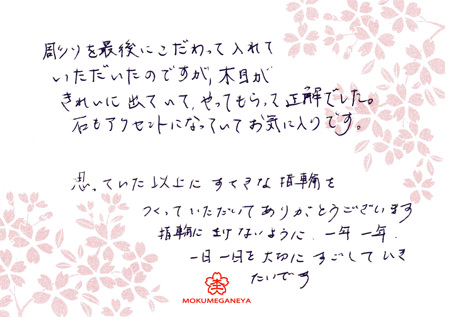 彫りを最後にこだわって入れて
いただいたのですが、木目が
きれいに出ていて、やってもらって正解でした。
石もアクセントになっていてお気に入りです。
思っていた以上にすてきな指輪を
つくっていただいてありがとうございます
指輪にまけないように、一年一年、
一日一日を大切にすごしていき
たいです
MOKUMEGANEYA